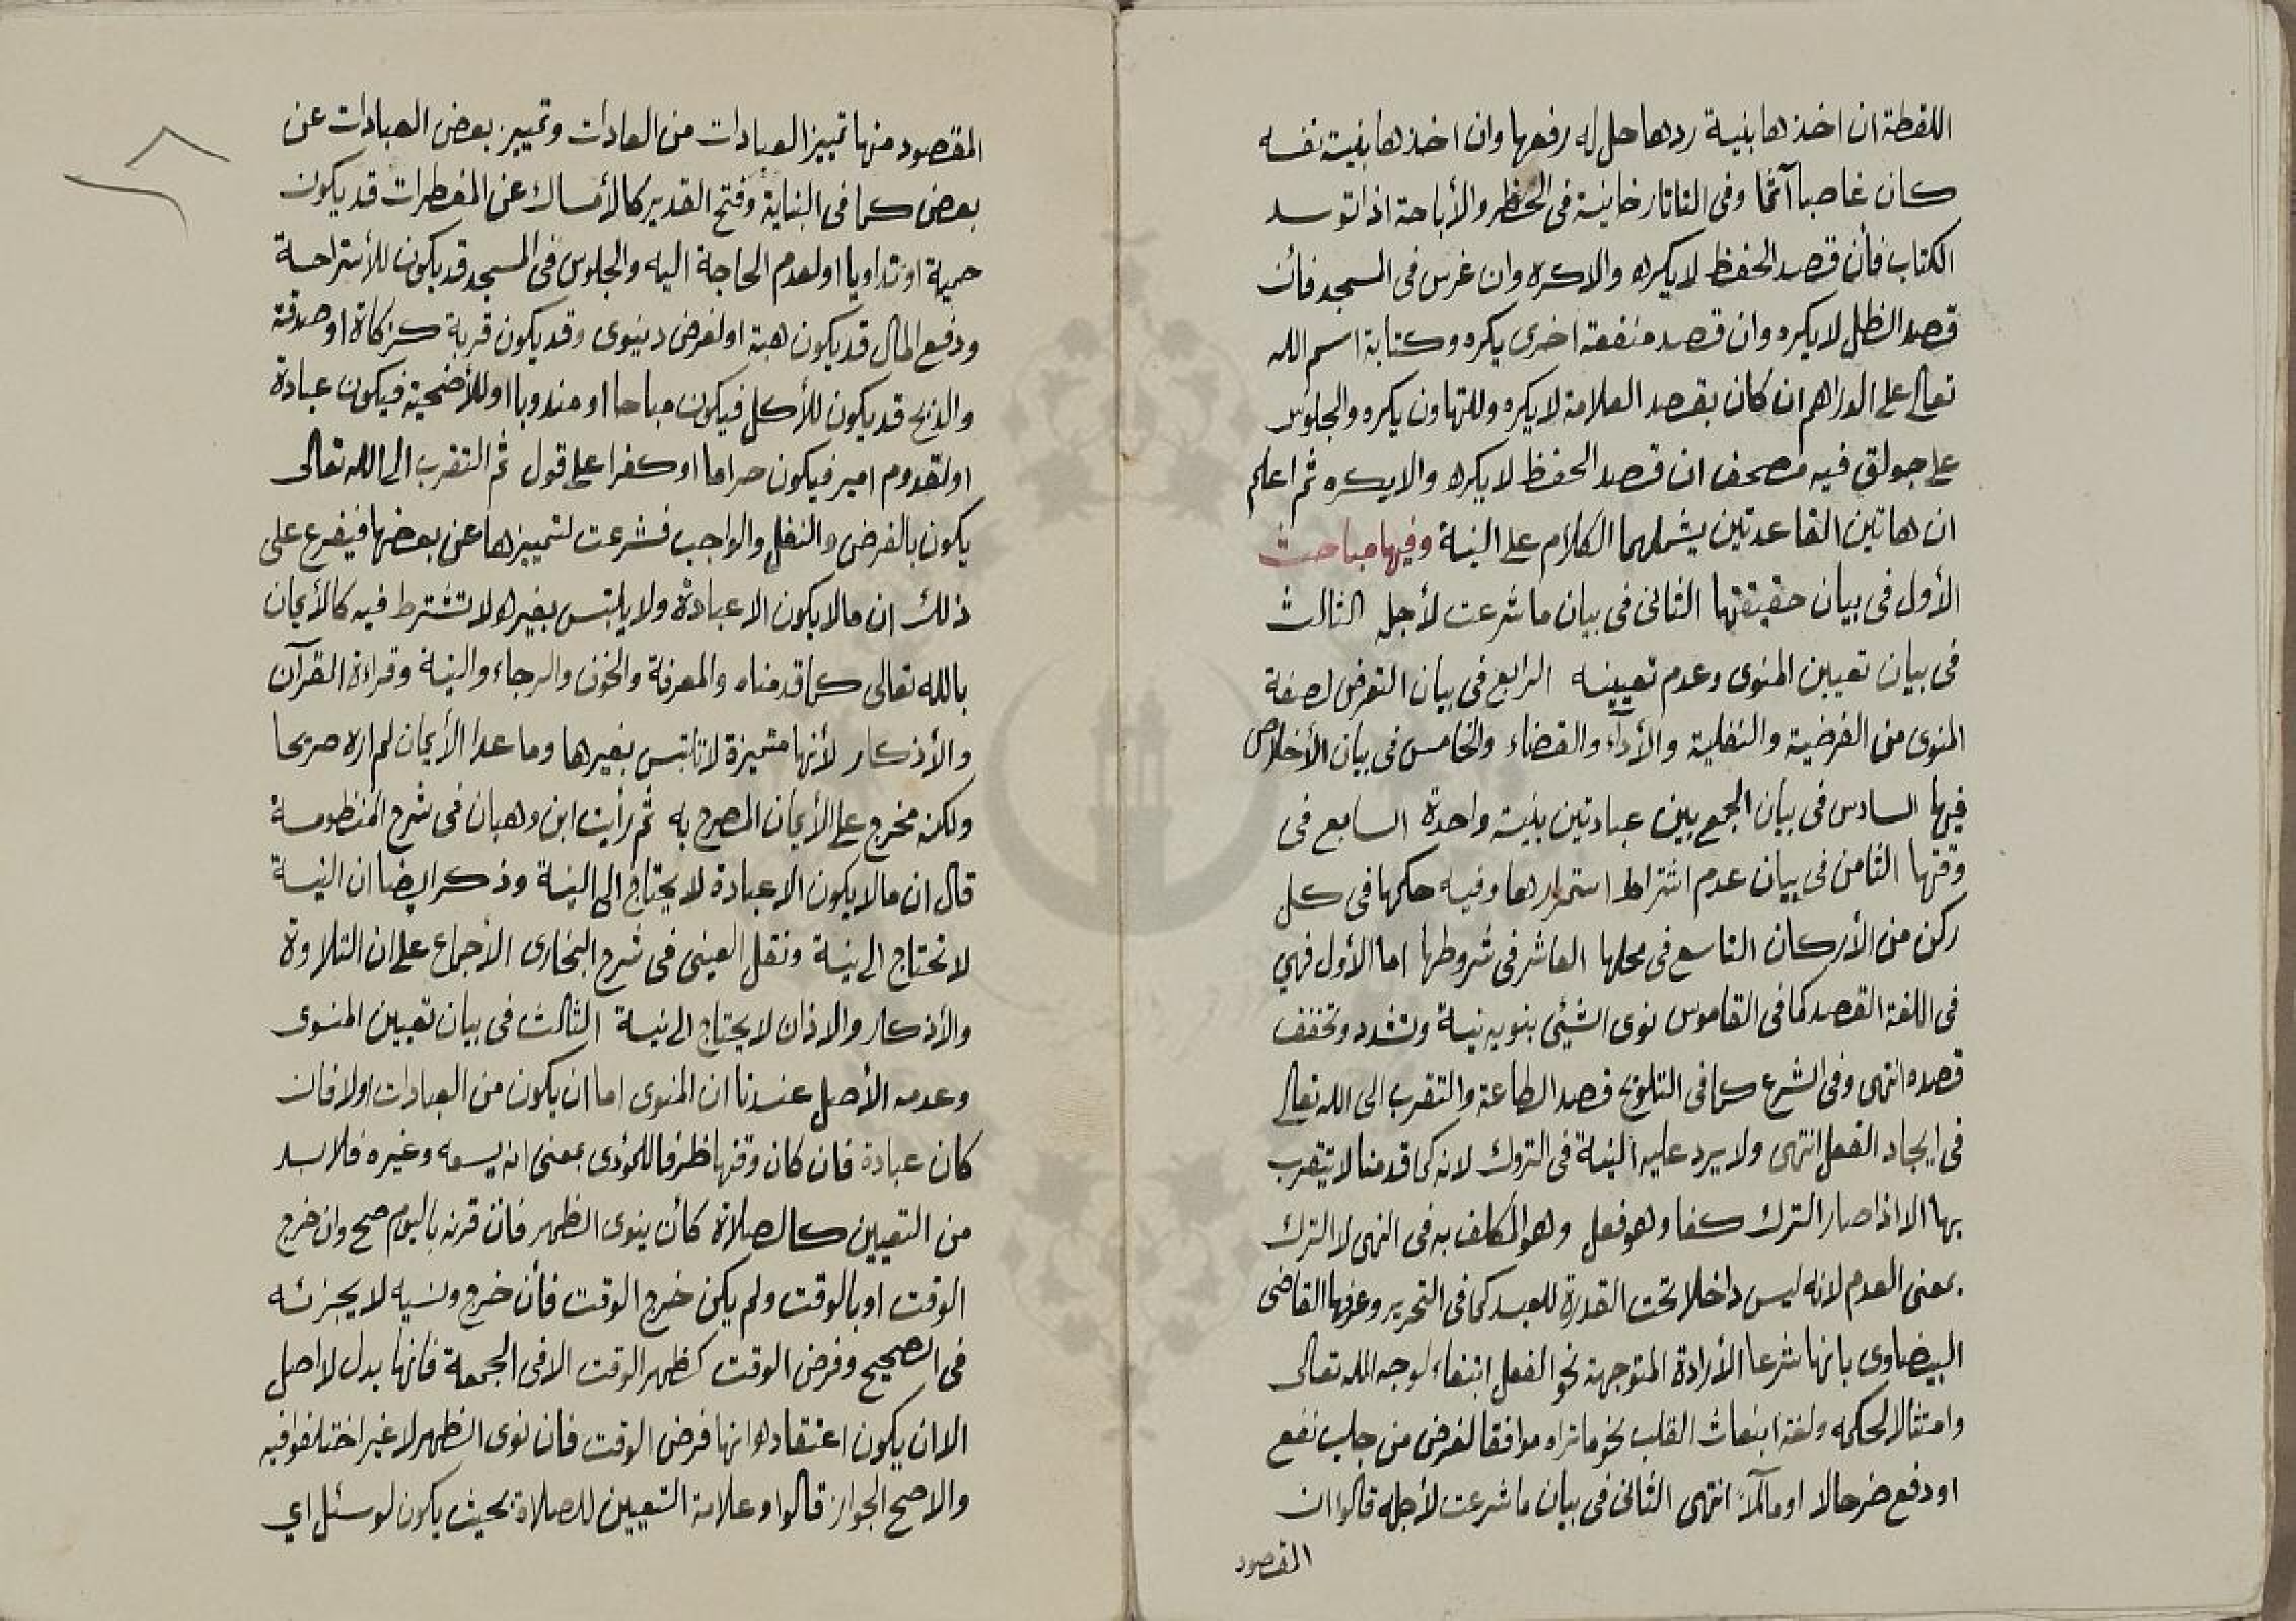 اللقطة ان اخذها بنية ردها حل له رفعها وان اخذها بنية نفسه
كان غاصبا آثما وفى التاتارخانية فى الحظر والأباحة اذا توسد
الكتاب فأن قصد الحفظ لا يكره والا كره وان غرس فى المسجد فأن
قصد الظل لا يكره وان قصد منفعة اخرى يكره وكتابة اسم الله
تعالى على الدراهم ان كان بقصد العلامة لا يكره وللتهاون يكره والجلوس
على جوالق فيه مصحف ان قصد الحفظ لا يكره والا يكره ثم اعلم
ان هاتين القاعدتين يشملهما الكلام على النية وفيها مباحث
الأول فى بيان حقيقتها الثانى فى بيان ما شرعت لأجله الثالث
فى بيان تعيين المنوى وعدم تعيينه الرابع فى بيان التعرض لصفة
المنوى من الفرضية والنفلية والأدآء والقضاء والخامس فى بيان الأخلاص
فيها السادس فى بيان الجمع بين عبادتين بنية واحدة السابع فى
وقتها الثامن فى بيان عدم اشتراط استمرارها وفيه حكمها فى كل
ركن من الأركان التاسع فى محلها العاشر فى شروطها اما الأول فهي
فى اللغة القصد كما فى القاموس نوى الشيئ ينويه نية وتشدد وتخفف
قصده انتهى وفى الشرع كما فى التلويح قصد الطاعة والتقرب الى الله تعالى
فى ايجاد الفعل انتهى ولا يرد عليه النية فى التروك لانه كما قدمنا لا يتقرب
بها الا اذا صار الترك كفا وهو فعل وهو المكلف به فى النهى لا الترك
بمعنى العدم لانه ليس داخلا تحت القدرة للعبد كما فى التحرير وعرفها القاضى
البيضاوى بانها شرعا الأرادة المتوجهة نحو الفعل ابتغاء لوجه الله تعالى
وامتثالا لحكمه ولغة انبعاث القلب نحو ما تراه موافقا لغرض من جلب نفع
او دفع ضر حالا او مآلا انتهى الثانى فى بيان ما شرعت لأجله قالوا ان
المقصود
المقصود منها تمييز العبادات من العادات وتمييز بعض العبادات عن
بعض كما فى البناية وفتح القدير كالأمساك عن المفطرات قد يكون
حمية او تداويا او لعدم الحاجة اليه والجلوس فى المسجد قد يكون للأستراحة
ودفع المال قد يكون هبة او لغرض دنيوى وقد يكون قربة كزكاة او صدقة
والذبح قد يكون للأكل فيكون مباحا او مندوبا او للأضحية فيكون عبادة
او لقدوم امير فيكون حراما او كفرا على قول ثم التقرب الى الله تعالى
يكون بالفرض والنفل والواجب فشرعت لتمييزها عن بعضها فيفرع على
ذلك ان ما لا يكون الا عبادة ولا يلتبس بغيره لا تشترط فيه كالأيمان
بالله تعالى كما قدمناه والمعرفة والخوف والرجاء والنية وقراءة القرآن
والأذكار لأنها متميزة لا تلتبس بغيرها وما عدا الأيمان لم اره صريحا
ولكنه مخرج على الأيمان المصرح به ثم رأيت ابن وهبان فى شرح المنظومة
قال ان ما لا يكون الا عبادة لا يحتاج الى النية وذكر ايضا ان النية
لا تحتاج الى نية ونقل العينى فى شرح البخارى الأجماع على ان التلاوة
والأذكار والاذان لا يحتاج الى نية الثالث فى بيان تعيين المنوى
وعدمه الأصل عندنا ان المنوى اما ان يكون من العبادات اولا فان
كان عبادة فان كان وقتها ظرفا للمؤدى بمعنى انه يسعه وغيره فلا بد
من التعيين كالصلاة كأن ينوى الظهر فان قرنه باليوم صح وان خرج
الوقت او بالوقت ولم يكن خرج الوقت فأن خرج ونسيه لا يجزئه
فى الصحيح وفرض الوقت كظهر الوقت الا فى الجمعة فانها بدل لا اصل
الا ان يكون اعتقاده انها فرض الوقت فان نوى الظهر لا غير اختلفوا فيه
والاصح الجواز قالوا وعلامة التعيين للصلاة بحيث يكون لو سئل اي